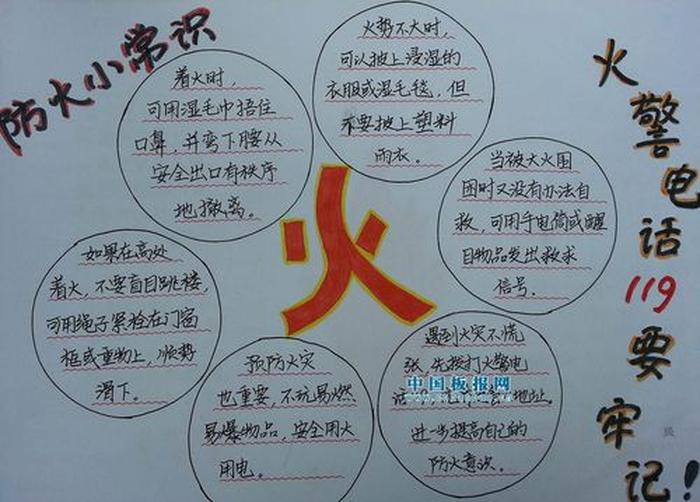 防火小常识
着火时,
可用湿毛巾捂住
口鼻,并弯下腰从
安全出口有秩序
地撤离。
火势不大时,
可以披上浸湿的
衣服或湿毛毯,但
不要披上塑料
雨衣。
当被大火围
困时又没有办法自
救,可用手电筒或醒
目物品发出救求
信号。
如果在高处
着火,不要盲目跳楼,
可用绳子紧栓在门窗
框或重物上,顺势
滑下。
火
预防火灾
也重要,不玩易燃
易爆物品,安全用火
用电。
遇到火灾不慌
张,先拨打火警电
中国板报网
话
地址。
进步提高自己的
防火意识。
火警电话119要牢记!